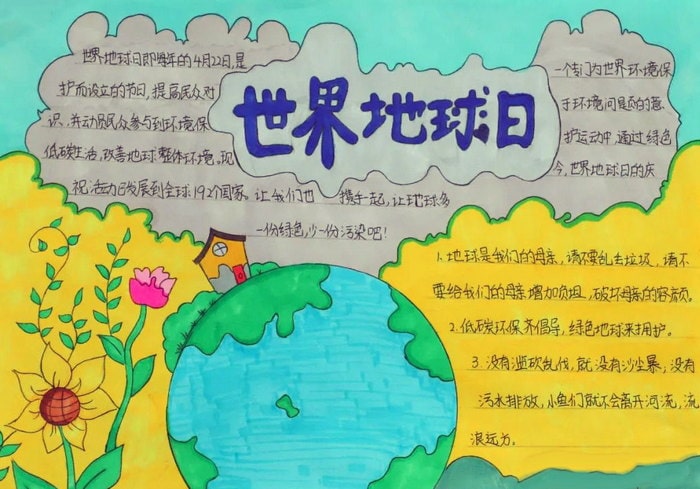 世界地球日
世界地球日即每年的4月22日,是 一个专门为世界环境保
护而设立的节日,提高民众对 于环境问题的意
识,并动员民众参与到环境保 护运动中,通过绿色
低碳生活,改善地球整体环境,现 今,世界地球日的庆
祝活动已发展到全球192个国家。让我们也 携手一起,让地球多
一份绿色,少一份污染吧!
1.地球是我们的母亲,请不要乱丢垃圾,请不
要给我们的母亲增加负担,破坏母亲的容颜.
2.低碳环保齐倡导,绿色地球来拥护。
3.没有滥砍乱伐,就没有沙尘暴,没有
污水排放,小鱼们就不会离开河流,流
浪远方。